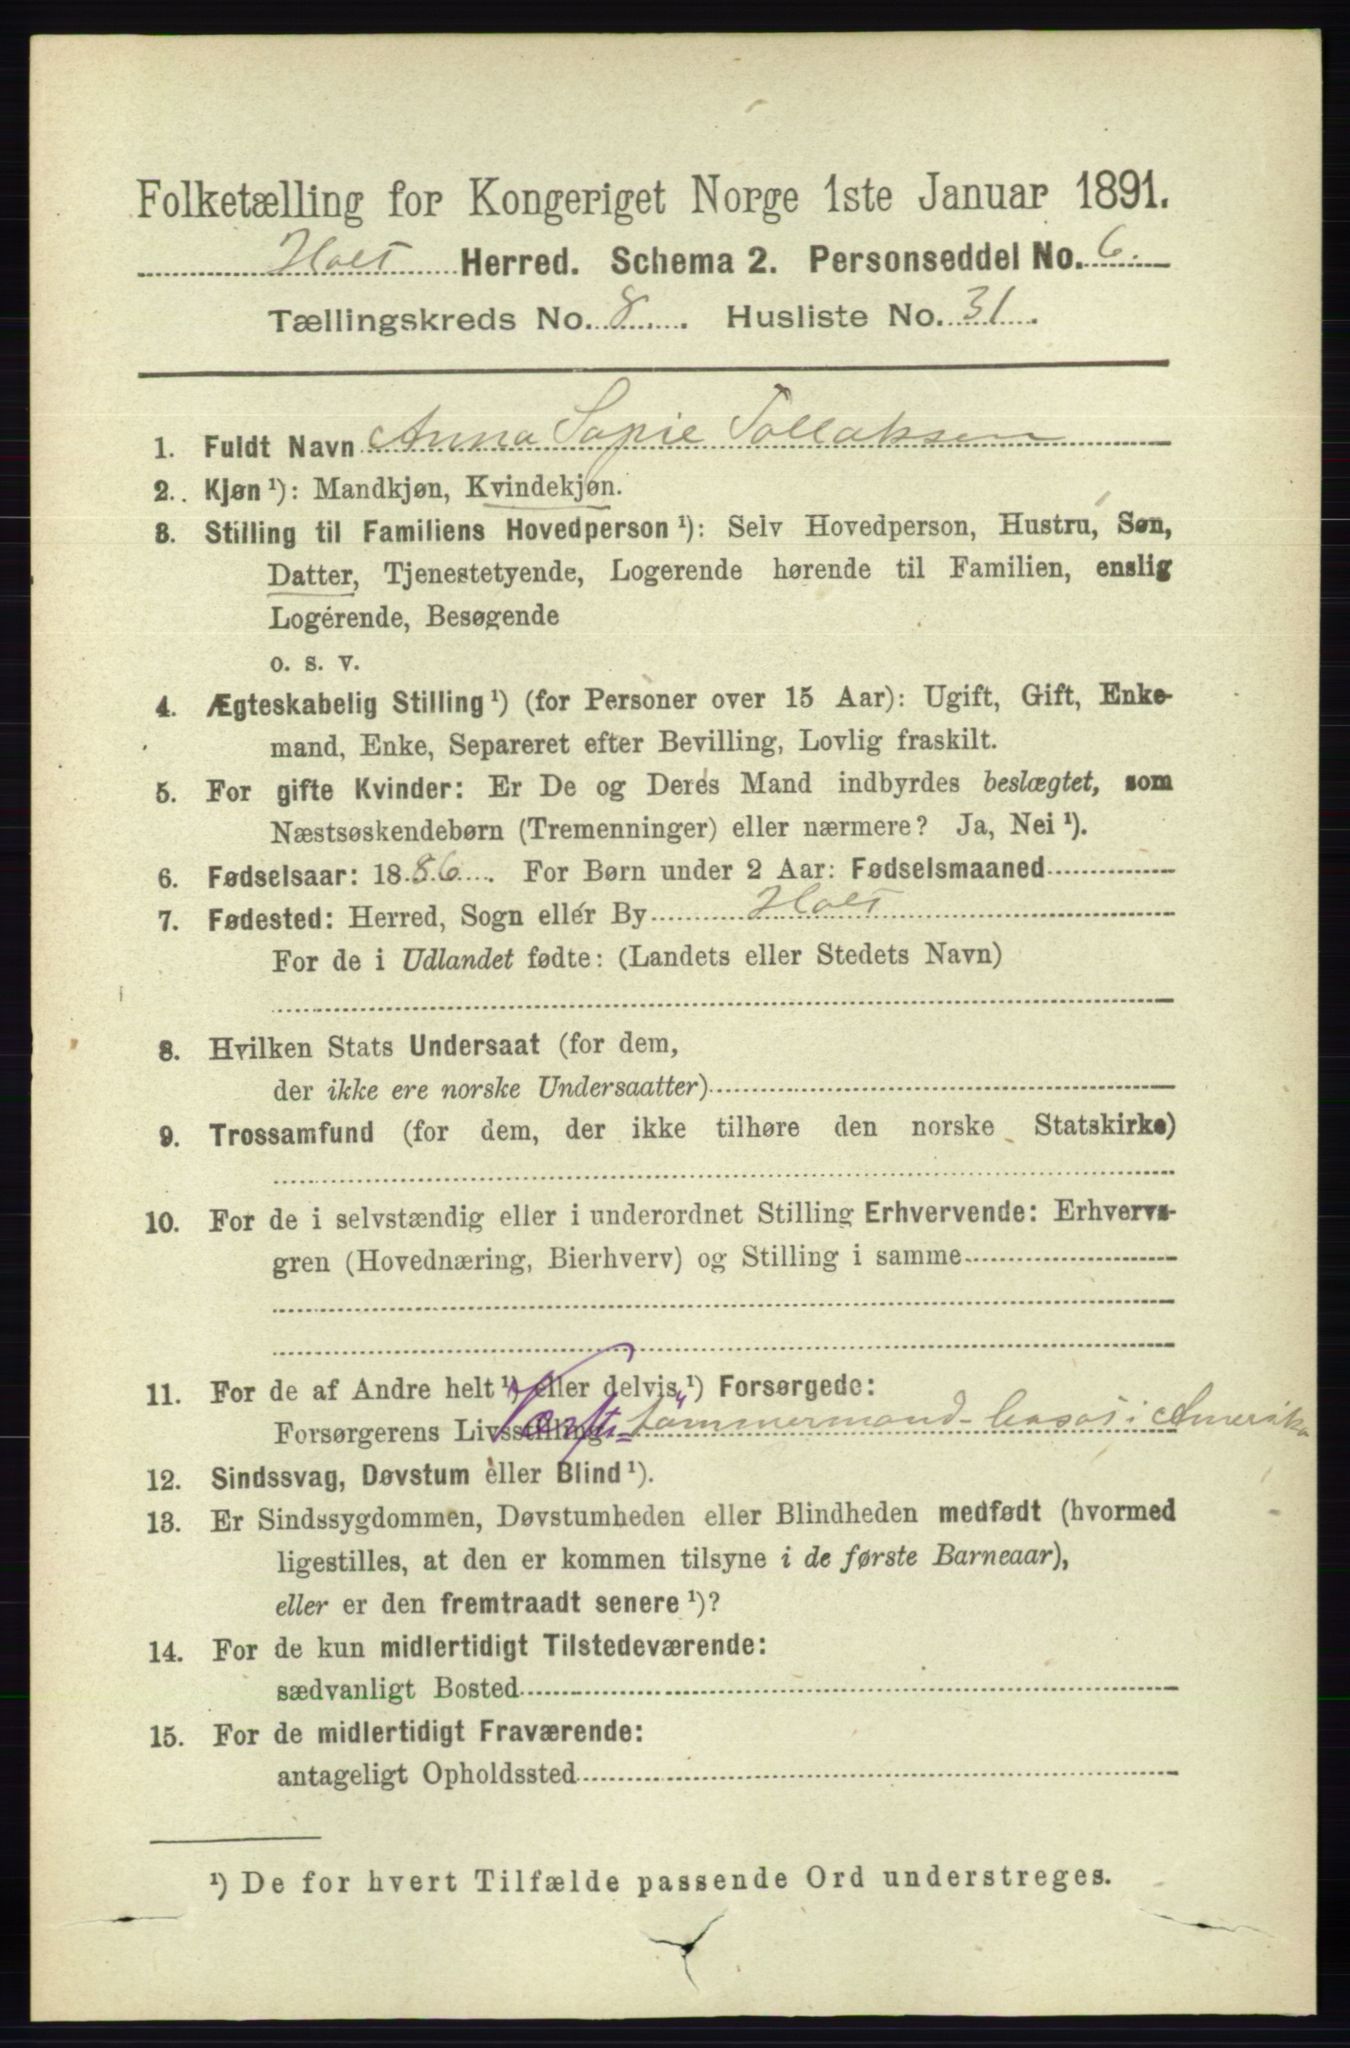 Folketælling for Kongeriget Norge 1ste Januar 1891.
Holt Herred. Schema 2. Personseddel No. 6.
Tællingskreds No. 8. Husliste No. 31.
1. Fuldt Navn Anna Sofie Tollaksen
2. Kjøn ¹): Mandkjøn, Kvindekjøn.
3. Stilling til Familiens Hovedperson ¹): Selv Hovedperson, Hustru, Søn,
Datter, Tjenestetyende, Logerende hørende til Familien, enslig
Logérende, Besøgende
o. s. v.
4. Ægteskabelig Stilling ¹) (for Personer over 15 Aar): Ugift, Gift, Enke-
mand, Enke, Separeret efter Bevilling, Lovlig fraskilt.
5. For gifte Kvinder: Er De og Deres Mand indbyrdes beslægtet, som
Næstsøskendebørn (Tremenninger) eller nærmere? Ja, Nei ¹).
6. Fødselsaar: 1886. For Børn under 2 Aar: Fødselsmaaned
7. Fødested: Herred, Sogn eller By Holt
For de i Udlandet fødte: (Landets eller Stedets Navn)
8. Hvilken Stats Undersaat (for dem,
der ikke ere norske Undersaatter)
9. Trossamfund (for dem, der ikke tilhøre den norske Statskirke)
10. For de i selvstændig eller i underordnet Stilling Erhvervende: Erhvervs-
gren (Hovednæring, Bierhverv) og Stilling i samme
11. For de af Andre helt ¹) eller delvis ¹) Forsørgede:
Forsørgerens Livsstilling tømmermand i Amerika
12. Sindssvag, Døvstum eller Blind ¹).
13. Er Sindssygdommen, Døvstumheden eller Blindheden medfødt (hvormed
ligestilles, at den er kommen tilsyne i de første Barneaar),
eller er den fremtraadt senere ¹)?
14. For de kun midlertidigt Tilstedeværende:
sædvanligt Bosted
15. For de midlertidigt Fraværende:
antageligt Opholdssted
¹) De for hvert Tilfælde passende Ord understreges.